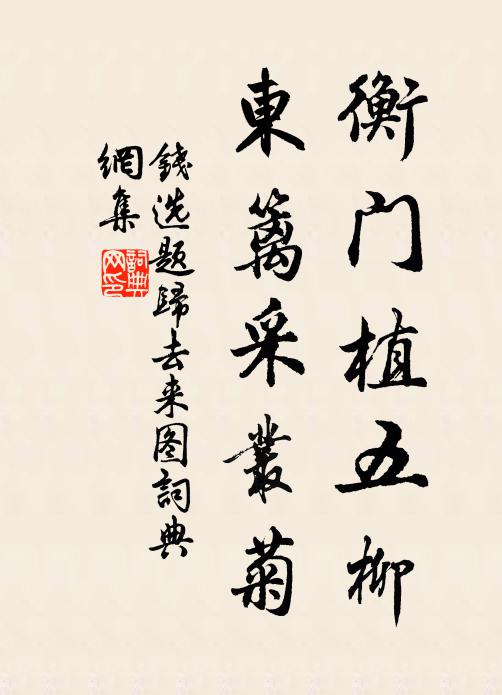 衡门植五柳
東篱采叢菊
錢选题歸去来图詞典
網集
詞典
网印